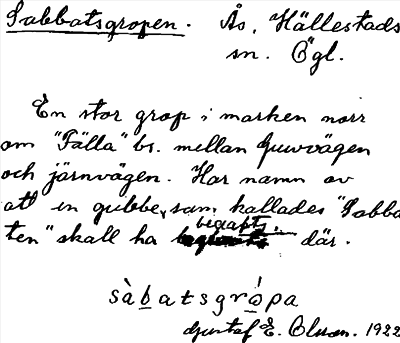 Sabbatsgropen. Ås, Hällestads
sn. Ögl.
En stor grop i marken norr
om "Fälla" bs. mellan
och järnvägen. Har namn av
att en gubbe, som kallades "Sabba
ten" skall ha begapts där.
sàbatsgrópa
Gustaf E. Olsson. 1922